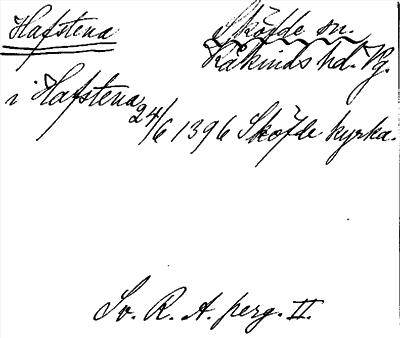 Hafstena
Sköfde sn.
Kåkinds hd. Vg.
i Hafstena 24/6 1396 Sköfde kyrka.
Sv. R. A. perg. II.